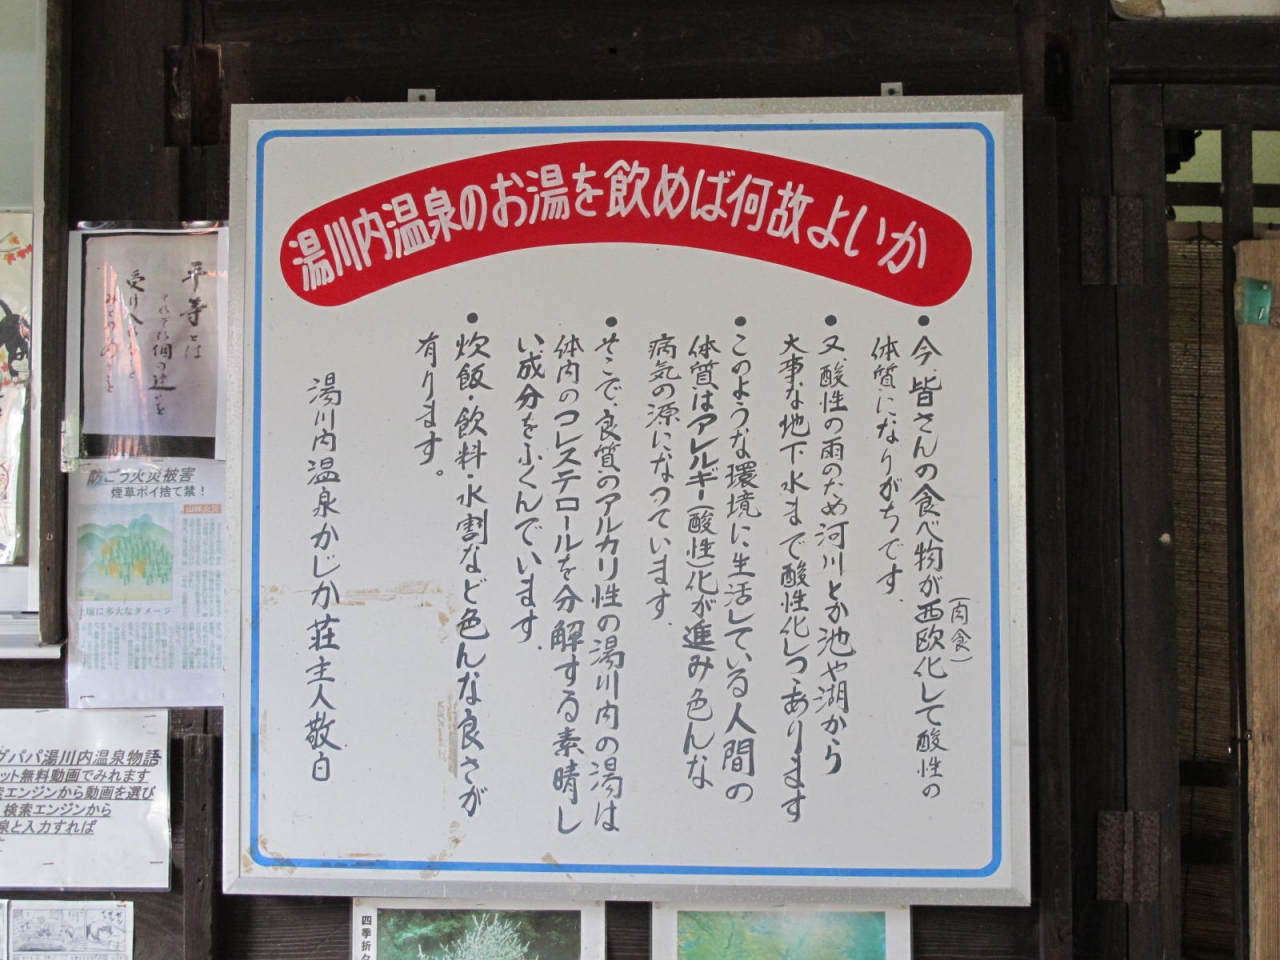 湯川内温泉のお湯を飲めば何故よいか
●今、皆さんの食べ物が西欧化して酸性の
(肉食)
体質になりがちです.
●又、酸性の雨のため河川とか池や湖から
大事な地下水まで酸性化しつゝあります
●このような環境に生活している人間の
体質はアレルギー(酸性)化が進み色んな
病気の源になっています.
●そこで、良質のアルカリ性の湯川内の湯は
体内のコレステロールを分解する素晴し
い成分をふくんでいます.
●炊飯・飲料・水割など色んな良さが
有ります。
湯川内温泉かじか荘主人敬白
平等とは
防ごう火災被害
煙草ポイ捨て禁!
山林火災
に多大なダメージ
パパ湯川内温泉物語
ット無料動画でみれます
エンジンから動画を選び
検索エンジンから
泉と入力すれば
四季折々